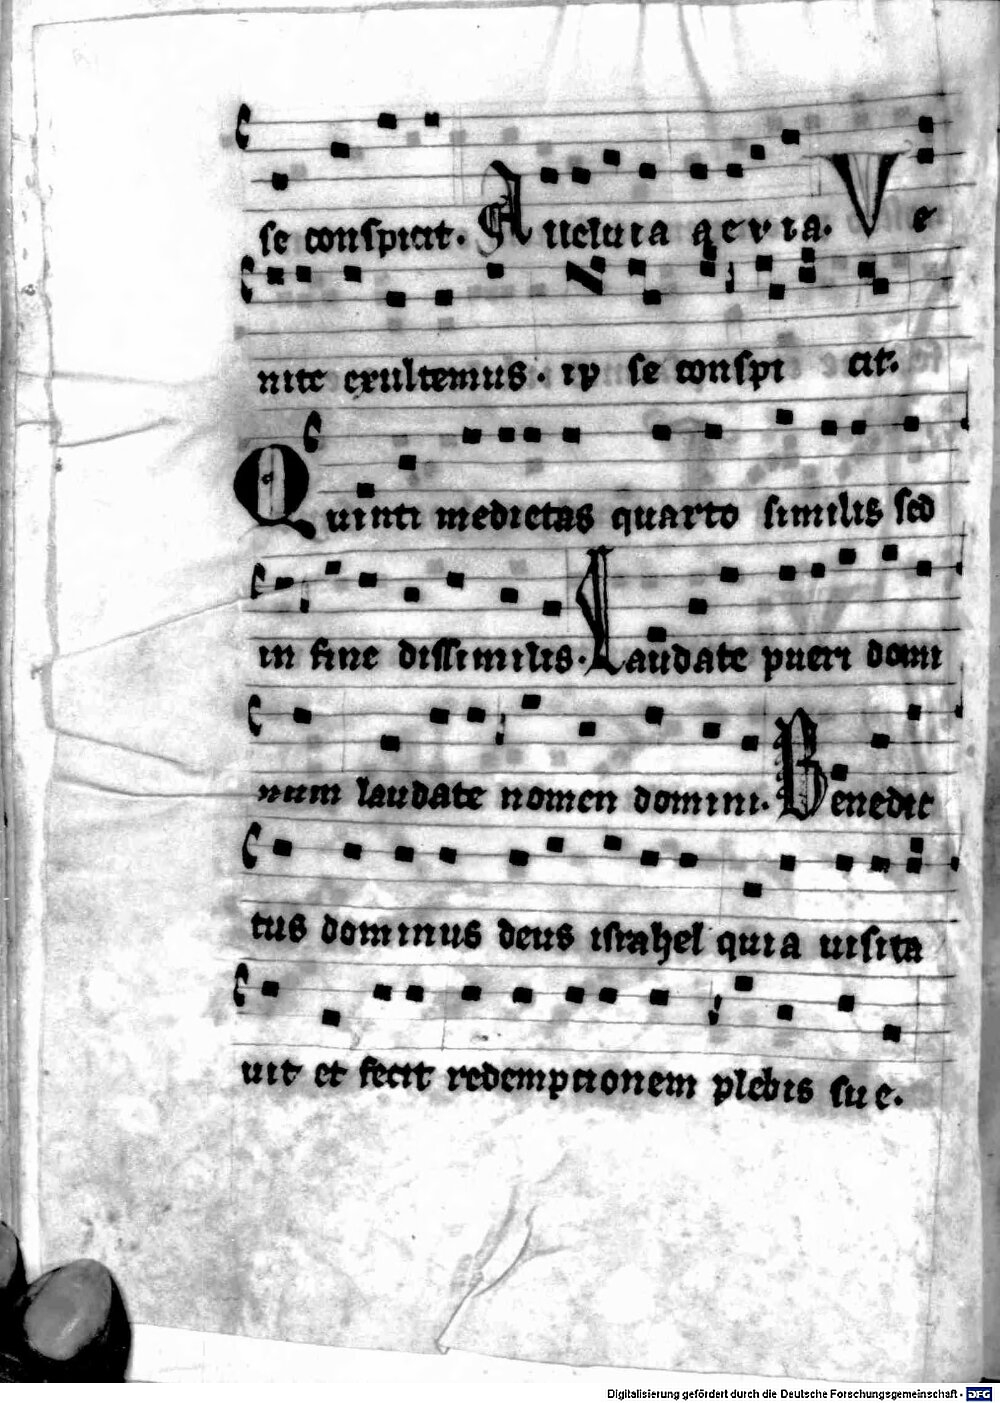 se conspicit. Alleluia aevia. Ve
nite exultemus. ip se conspi cit.
Quinti medietas quarto similis sed
in fine dissimilis. Laudate pueri domi
num laudate nomen domini. Benedic
tus dominus deus israhel quia uisita
uit et fecit redemptionem plebis sue.
Digitalisierung gefördert durch die Deutsche Forschungsgemeinschaft - DFG